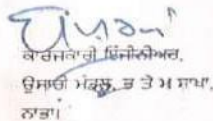 ਕਾਰਜਕਾਰੀ ਇੰਜੀਨੀਅਰ,
ਉਸਾਰੀ ਮੰਡਲ, ਭ ਤੇ ਮ ਸ਼ਾਖਾ,
ਨਾਭਾ।